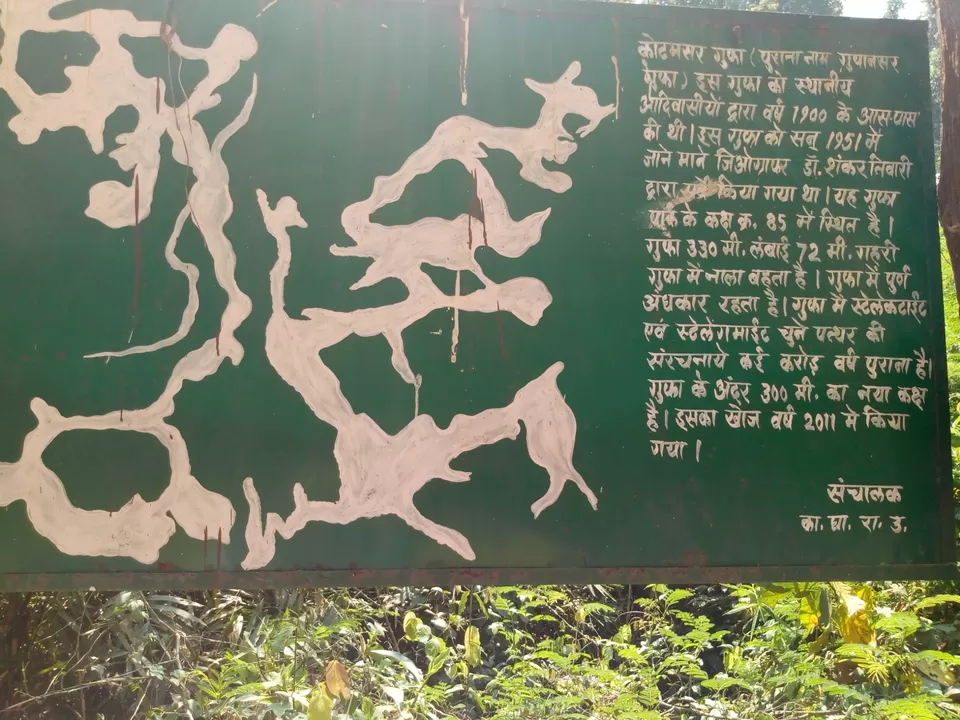 कोटमसर गुफा (पुराना नाम गुपानसर
गुफा) इस गुफा को स्थानीय
आदिवासीयों द्वारा वर्ष 1900 के आस-पास
की थी। इस गुफा को सन् 1951 में
जाने माने जिओग्राफर डॉ. शंकर तिवारी
द्वारा किया गया था। यह गुफा
पार्क के कक्ष क्र. 85 में स्थित है।
गुफा 330 मी. लंबाई 72 मी. गहरी
गुफा में नाला बहता है। गुफा में पुर्ण
अंधकार रहता है। गुफा में स्टेलेकटाईट
एवं स्टेलेगमाईट चुने पत्थर की
संरचनाये कई करोड़ वर्ष पुराना है।
गुफा के अंदर 300 मी. का नया कक्ष
है। इसका खोज वर्ष 2011 मे किया
गया।
संचालक
का. घा. रा. उ.